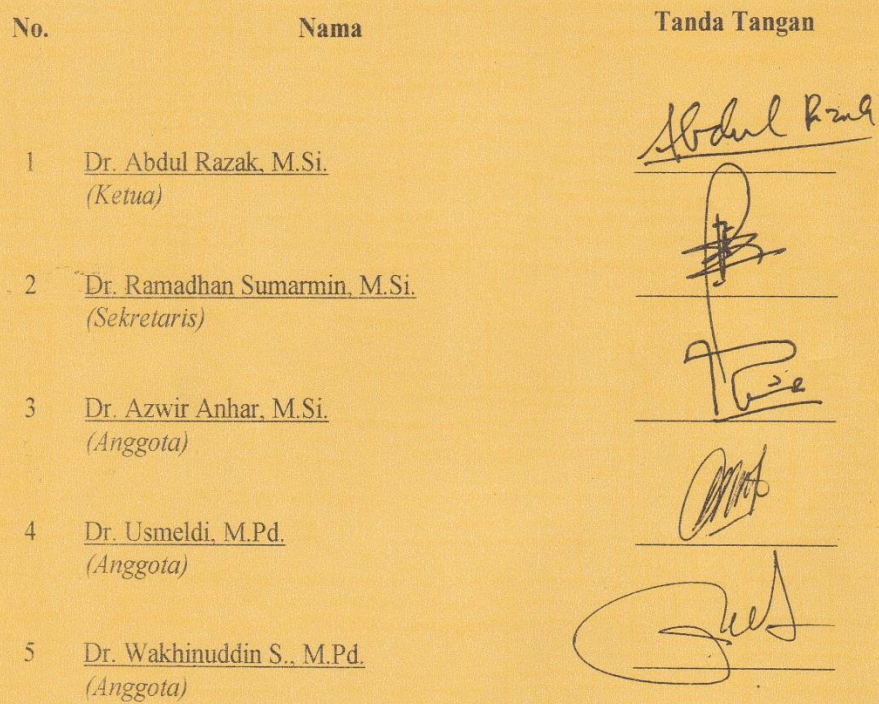 No. Nama Tanda Tangan
Abdul Razak
1 Dr. Abdul Razak, M.Si.
(Ketua)
2 Dr. Ramadhan Sumarmin, M.Si.
(Sekretaris)
3 Dr. Azwir Anhar, M.Si.
(Anggota)
4 Dr. Usmeldi, M.Pd.
(Anggota)
5 Dr. Wakhinuddin S., M.Pd.
(Anggota)